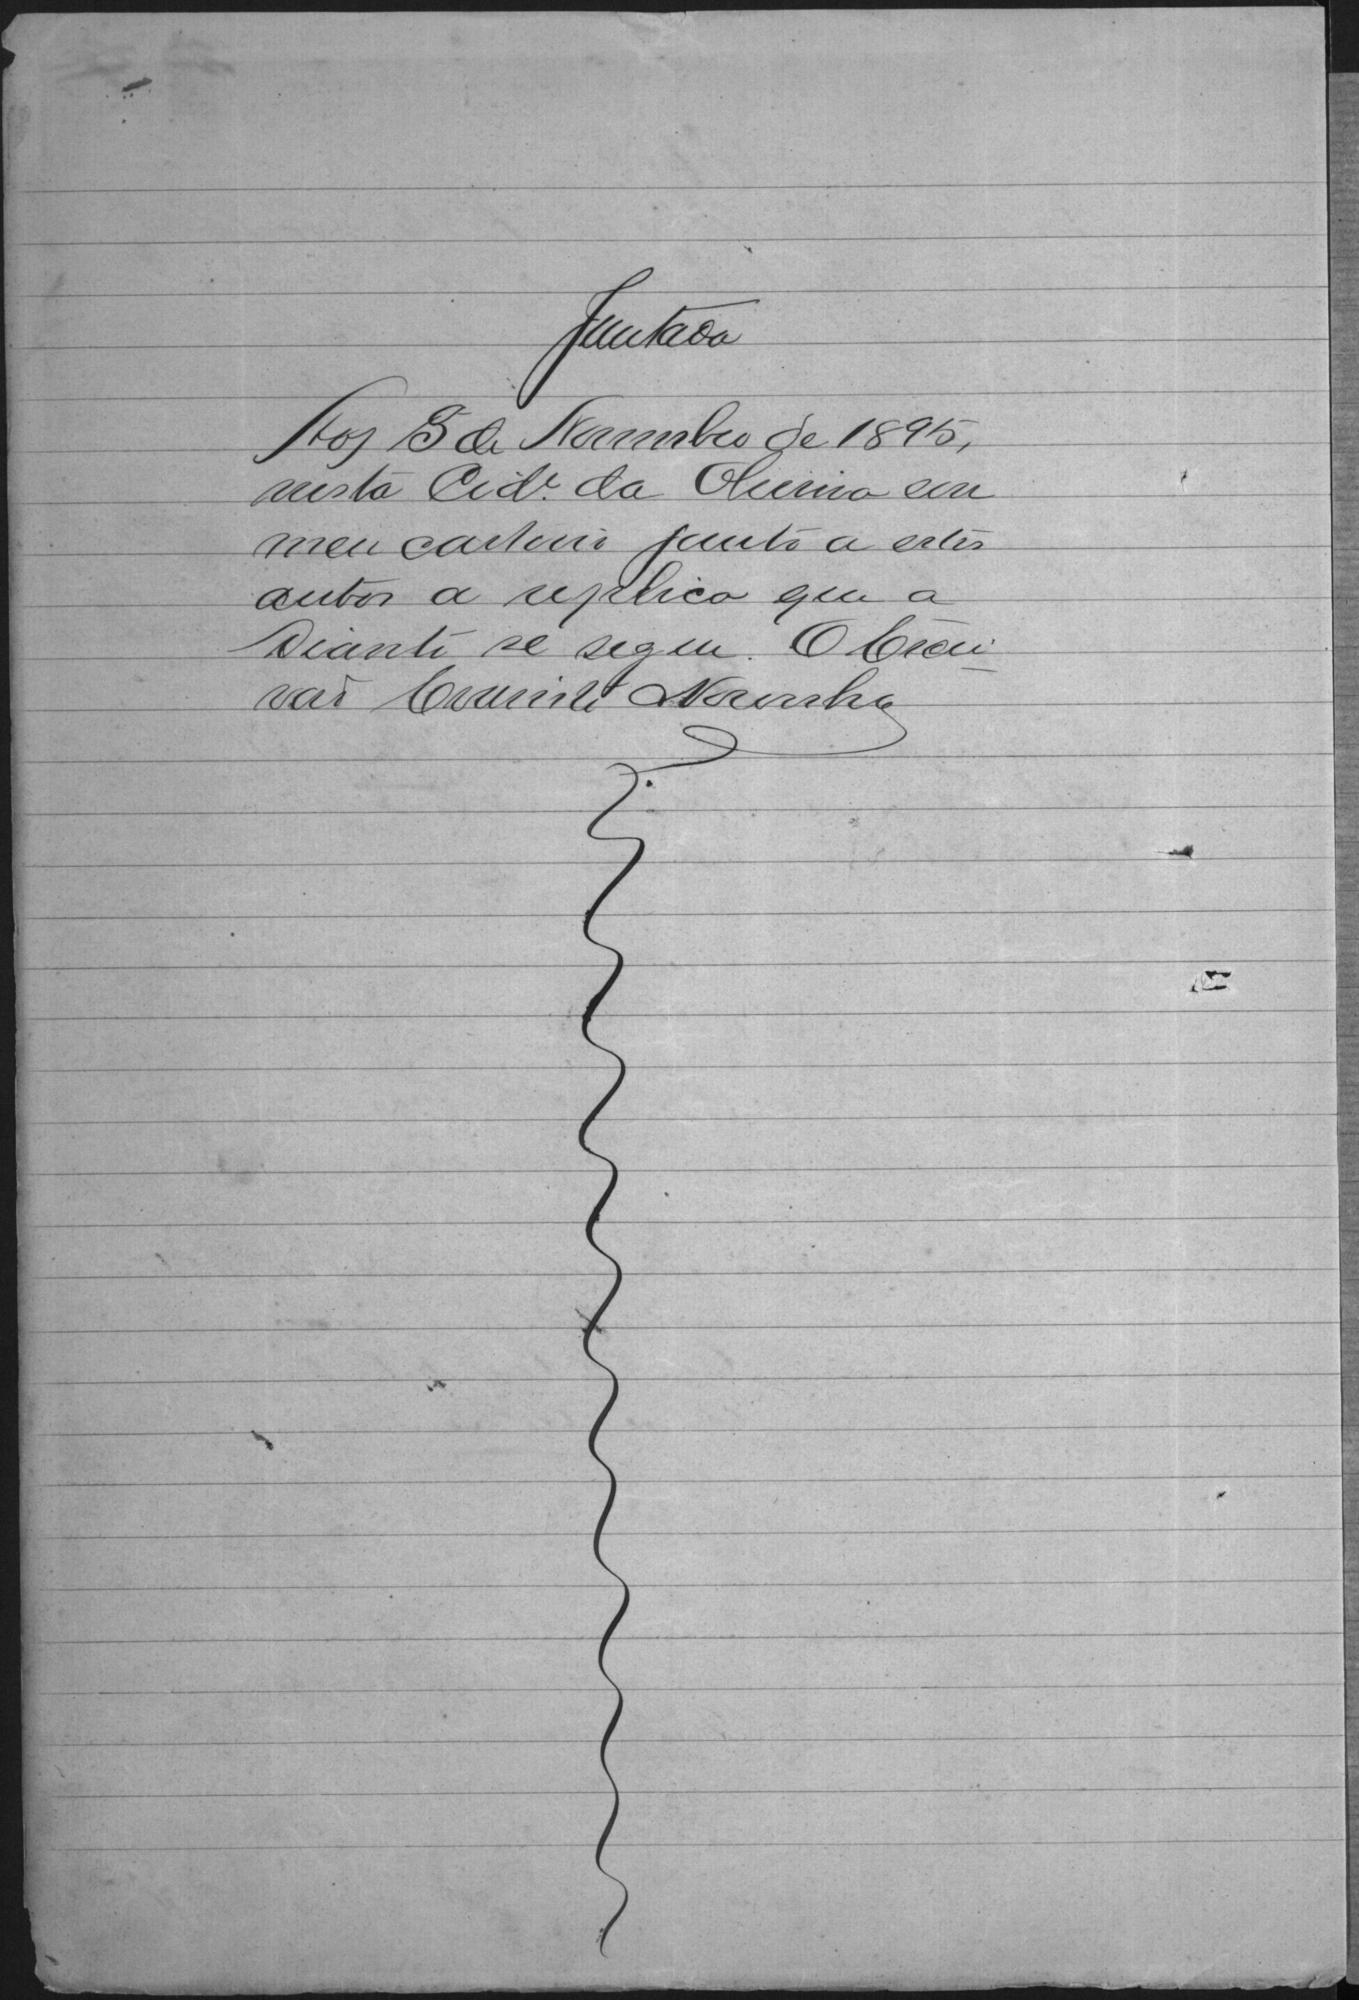 Juntada
Aos 5 de Novembro de 1895,
nesta Cid.e da em
meu cartorio junto a estes
autos a replica que a
diante se segue. O Escri-
vão Evaristo Noronha